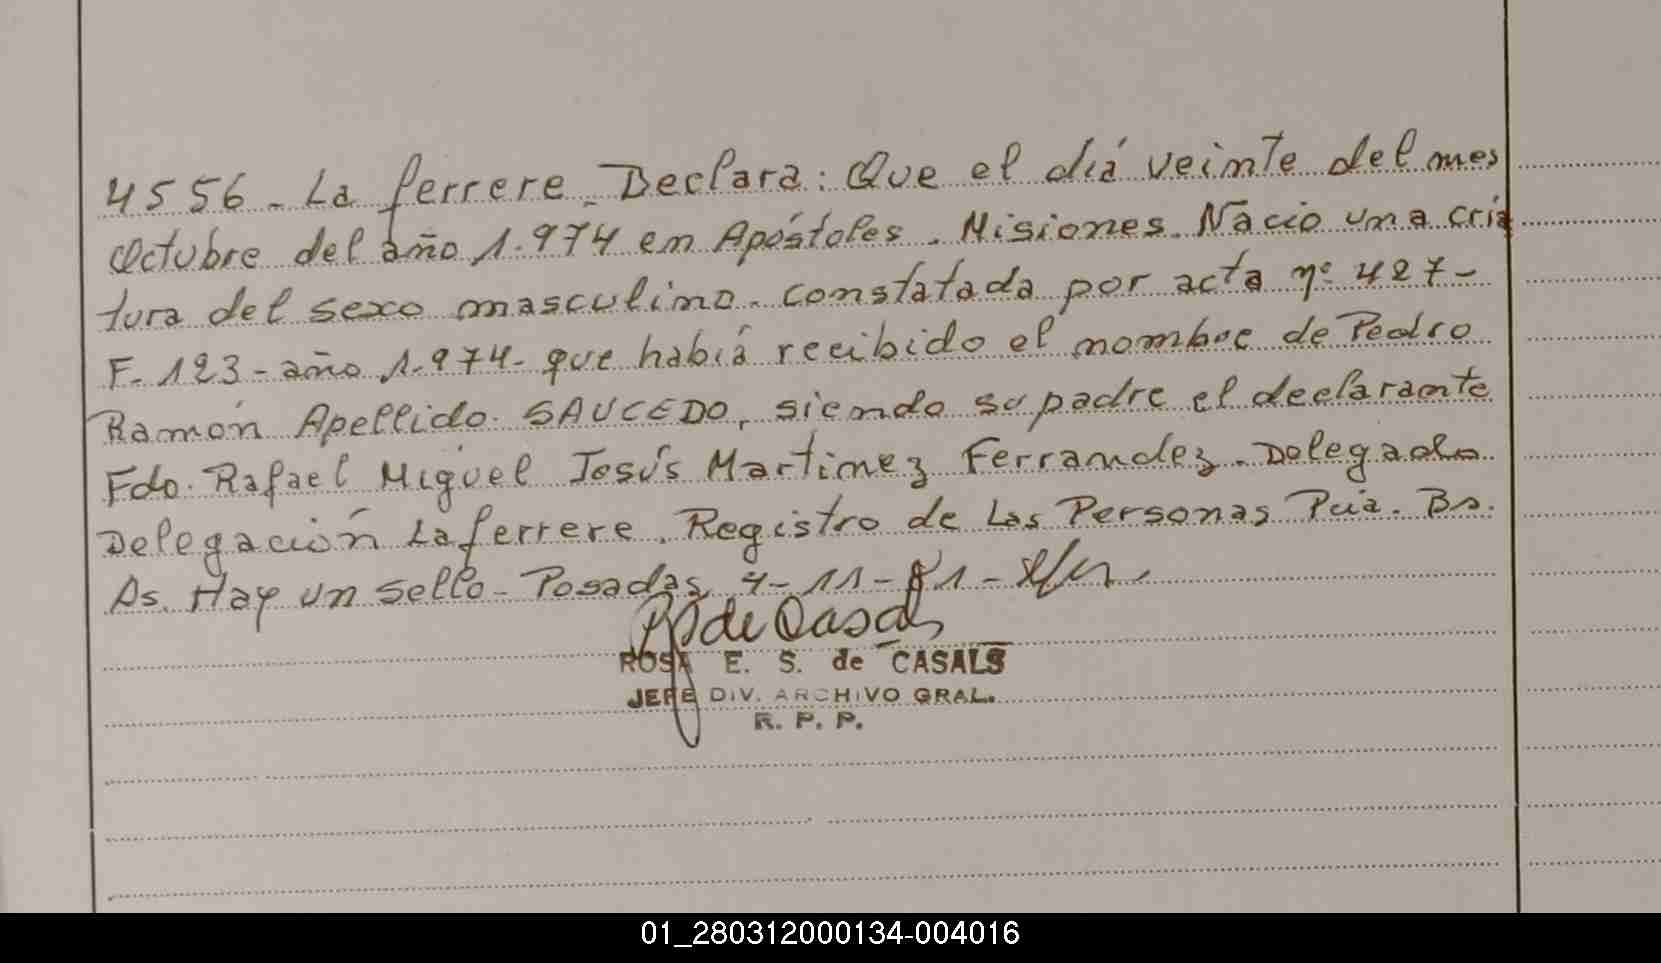 4556 - La ferrere. Declara: Que el diá veinte del mes
Octubre del año 1.974 en Apóstoles. Misiones. Nació una cria
tura del sexo masculino. constatada por acta nº 427-
F. 123 - año 1.974- que habiá recibido el nombre de Pedro
Ramón Apellido. SAUCEDO, siendo su padre el declarante
Fdo. Rafael Miguel Jesús Martinez Ferrandez. Delegado
Delegación Laferrere. Registro de Las Personas Pcia. Bs.
As. Hay un sello - Posadas, 4-11-81-
de Casals
ROSA E. S. de CASALS
JEFE DIV. ARCHIVO GRAL.
R. P. P.
01_280312000134-004016